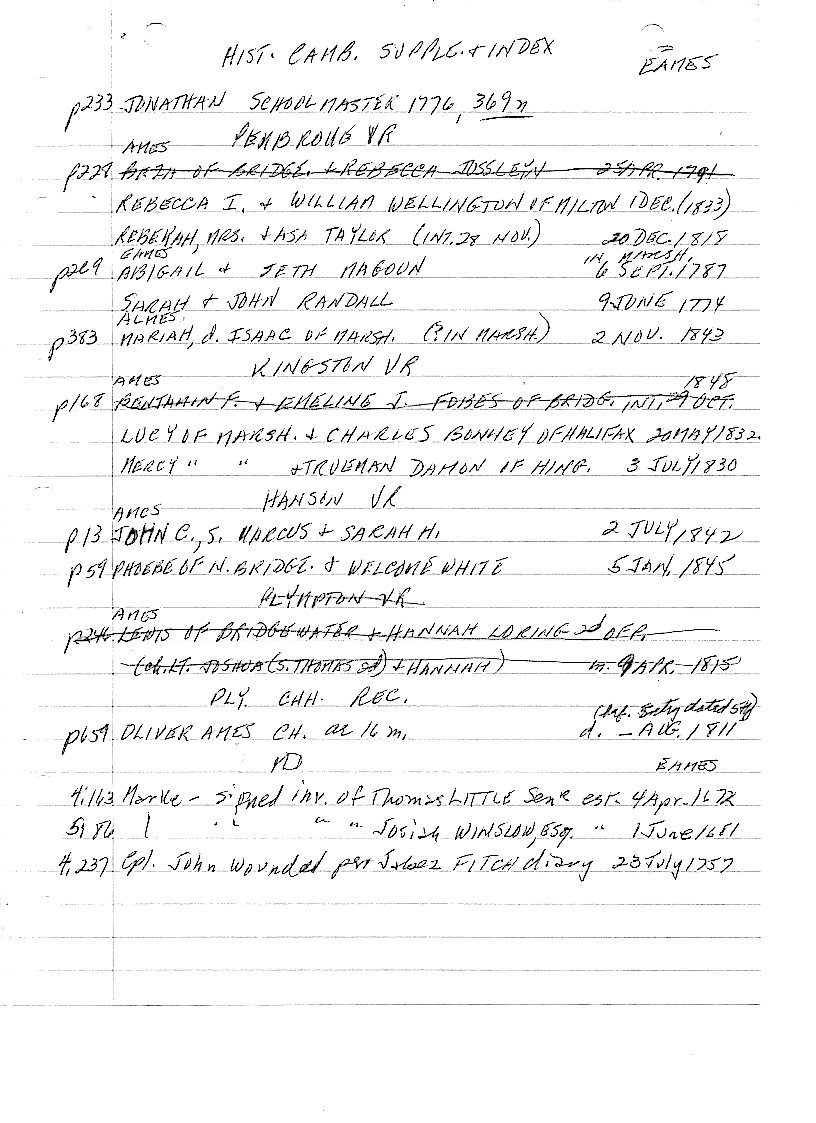 HIST. CAMB. SUPPLE. + INDEX EAMES
p233 JONATHAN SCHOOLMASTER 1776, 369n
PEMBROKE VR
AMES
p229 BAZA OF BRIDGE. + REBECCA JOSSLEYN 25 APR 1791
REBECCA I. + WILLIAM WELLINGTON OF MILTON 1 DEC. (1833)
REBEKAH, MRS. + ASA TAYLOR (INT. 28 NOV.) 20 DEC. 1818
EAMES IN MARSH.
p269 ABIGAIL + SETH MAGOUN 6 SEPT. 1787
SARAH + JOHN RANDALL 9 JUNE 1774
ALMES
p383 MARIAH, d. ISAAC OF MARSH. (? IN MARSH) 2 NOV. 1843
KINGSTON VR
AMES 1848
p168 BENJAMIN F. + EMELINE J. FOBES OF BRIDG. INT, 29 OCT.
LUCY OF MARSH. + CHARLES BONNEY OF HALIFAX 20 MAY 1832.
MERCY " " + TRUEMAN DAMON OF HING. 3 JULY 1830
HANSON VR
AMES
p13 JOHN C., S. MARCUS + SARAH H. 2 JULY 1842
p59 PHOEBE OF N. BRIDGE. + WELCOME WHITE 5 JAN, 1845
PLYMPTON VR
AMES
p246 LEWIS OF BRIDGEWATER + HANNAH LORING 2d OF P.
(d. LT. JOSHUA (S. THOMAS 2d) + HANNAH) m. 9 APR 1815
PLY. CHH. REC.
(inf. Entry dated 5th)
p659 OLIVER AMES CH. ae 16 m. d. — AUG. 1811
MD EAMES
4:163 Marke - signed inv. of Thomas LITTLE Senr est. 4 Apr. 1672
5: 86 " " " Josiah WINSLOW, ESQ. " 1 June 1681
4, 237 Cpl. John wounded per Jabez FITCH diary 23 July 1757